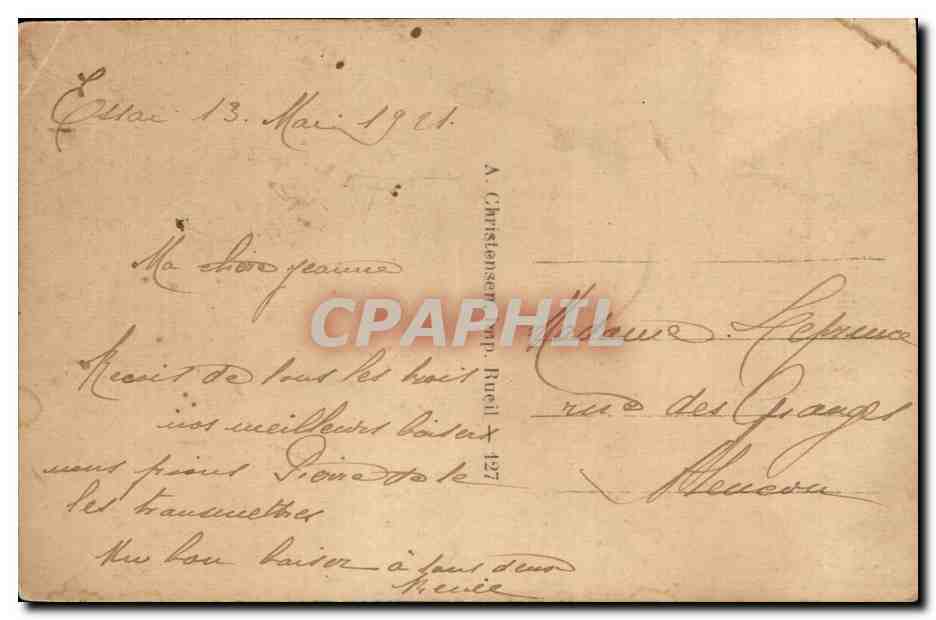 Essai 13. Mai 1921.
Ma chère Jeanne
Recoit de tous les trois
nos meilleurs baisers
nous prions Pierre de te
les transmettres
Un bon baiser à tous deux
Renée
A. Christensen, imp. Rueil × 127
Madame Leprince
rue des Granges
Alencon
CPAPHIL